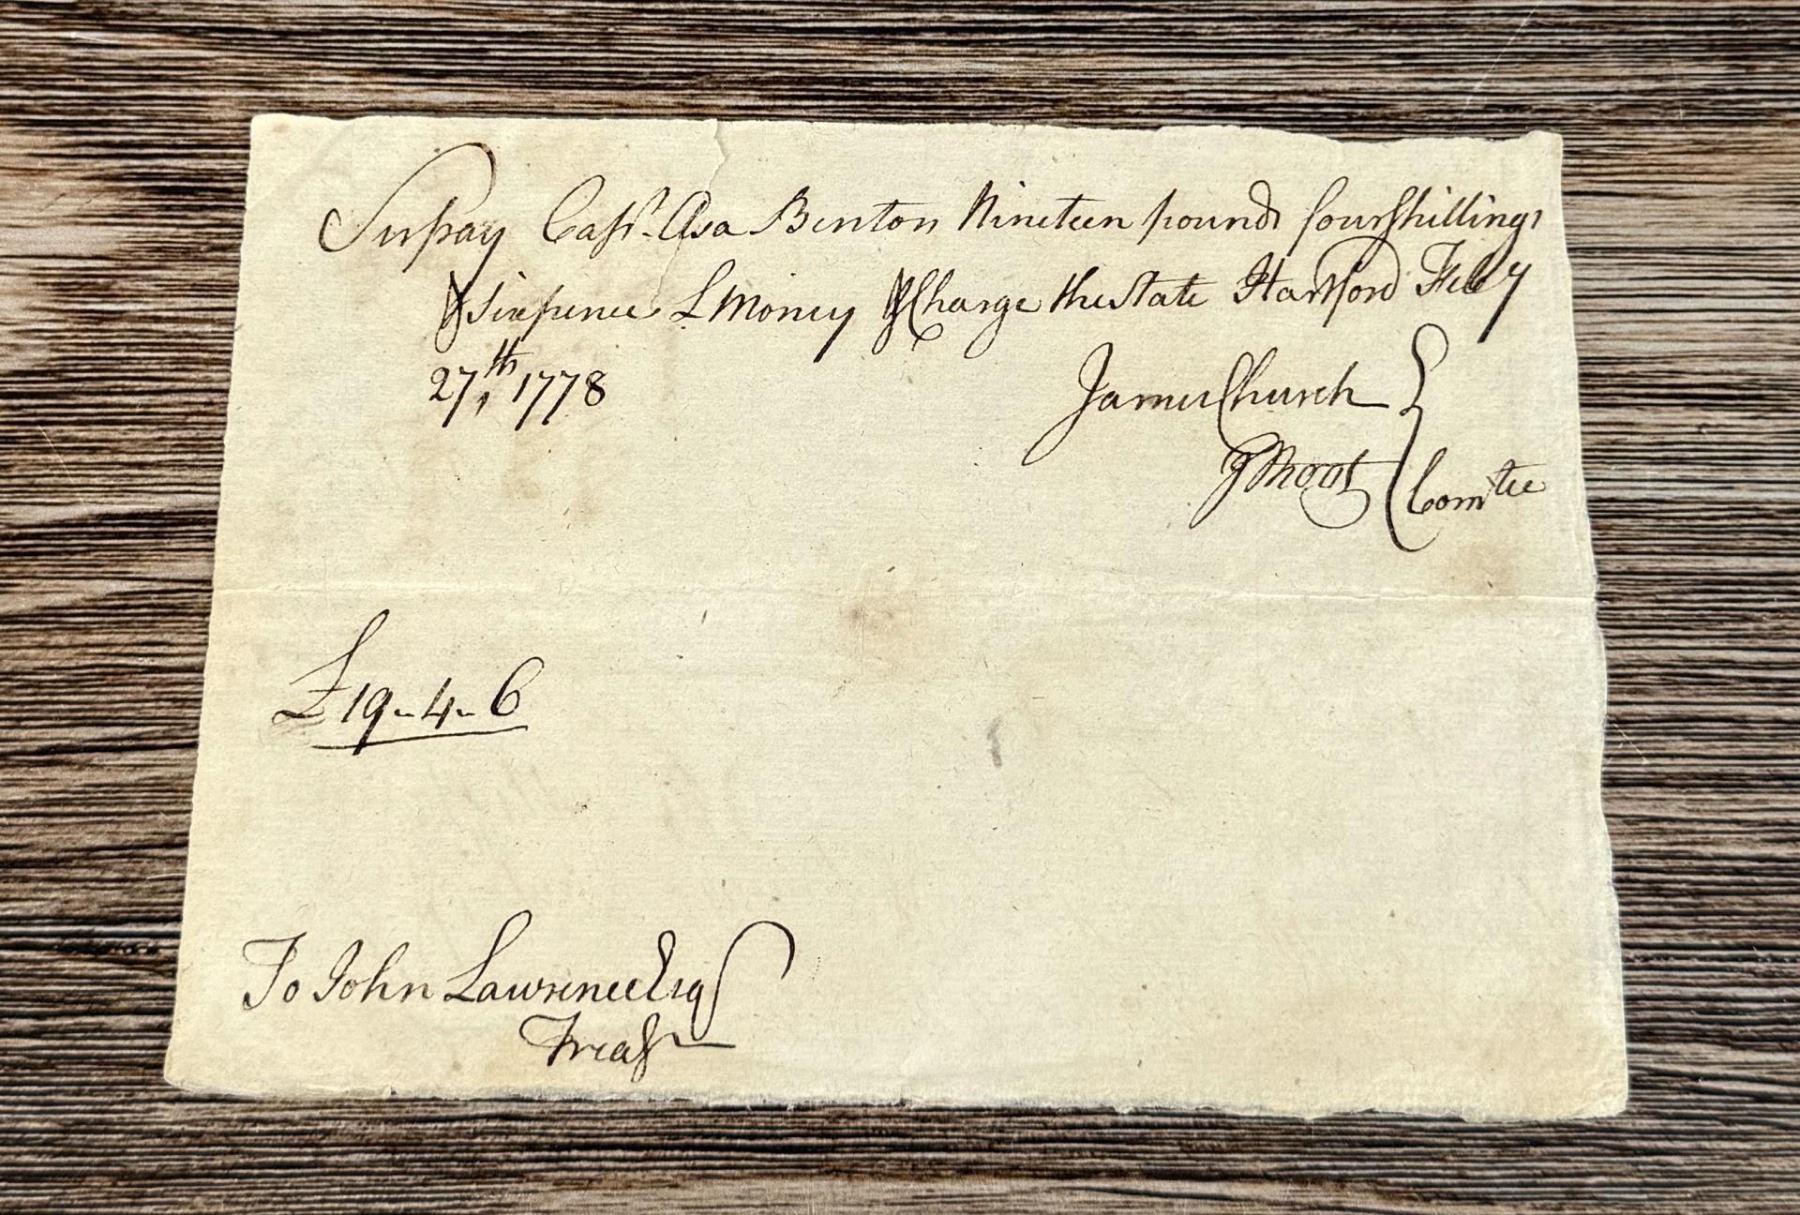 Sir pay Capt. Asa Benton Nineteen pounds four shillings
& Sixpence L Money & Charge the State Hartford Feby
27th, 1778
James Church
Comtee
£19-4-6
To John Lawrence Esqr
Treasr